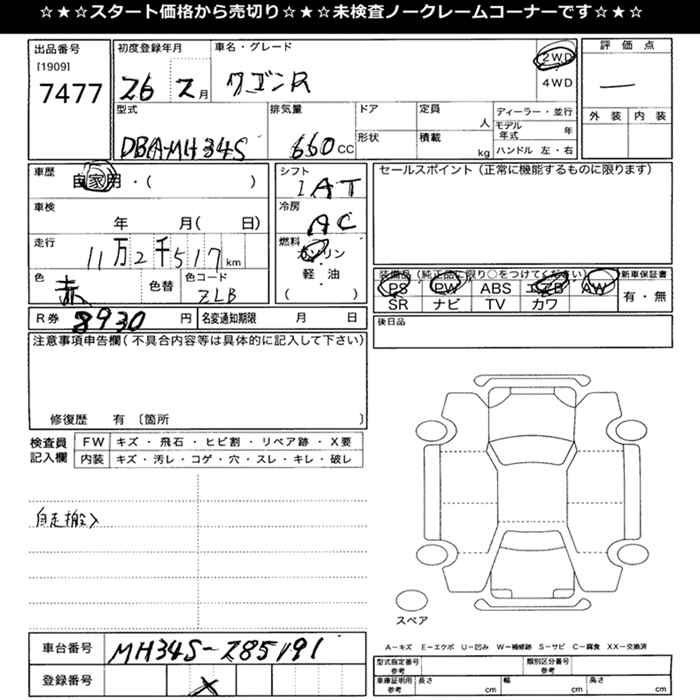 ☆★☆スタート価格から売切り☆★☆未検査ノークレームコーナーです☆★☆
出品番号 [1909] 7477
初度登録年月 26 2月
車名・グレード ワゴンR
2WD
4WD
評価点 ―
外装 内装
型式 DBA-MH34S
排気量 660CC
ドア
形状
定員 人
積載 kg
ディーラー・並行
モデル年式 年
ハンドル 左・右
車歴 自家用・( )
車検 年 月( 日)
走行 11万2千517km
色 赤
色替
色コード ZLB
シフト IAT
冷房 AC
燃料 ガソリン
軽・油
( )
セールスポイント(正常に機能するものに限ります)
装備品(純正品に限り○をつけてください)
PS PW ABS エアB AW
SR ナビ TV カワ
新車保証書
有・無
R券 8930円
名変通知期限 月 日
後日品
注意事項申告欄(不具合内容等は具体的に記入して下さい)
修復歴 有 〔箇所 〕
検査員記入欄
FW キズ・飛石・ヒビ割・リペア跡・X要
内装 キズ・汚レ・コゲ・穴・スレ・キレ・破レ
自走搬入
スペア
A-キズ E-エクボ U-凹み W-補修跡 S-サビ C-腐食 XX-交換済
車台番号 MH34S-285191
登録番号 X
型式指定番号 参考
類別区分番号 参考
車庫証明用 参考 長さ cm 幅 cm 高さ cm